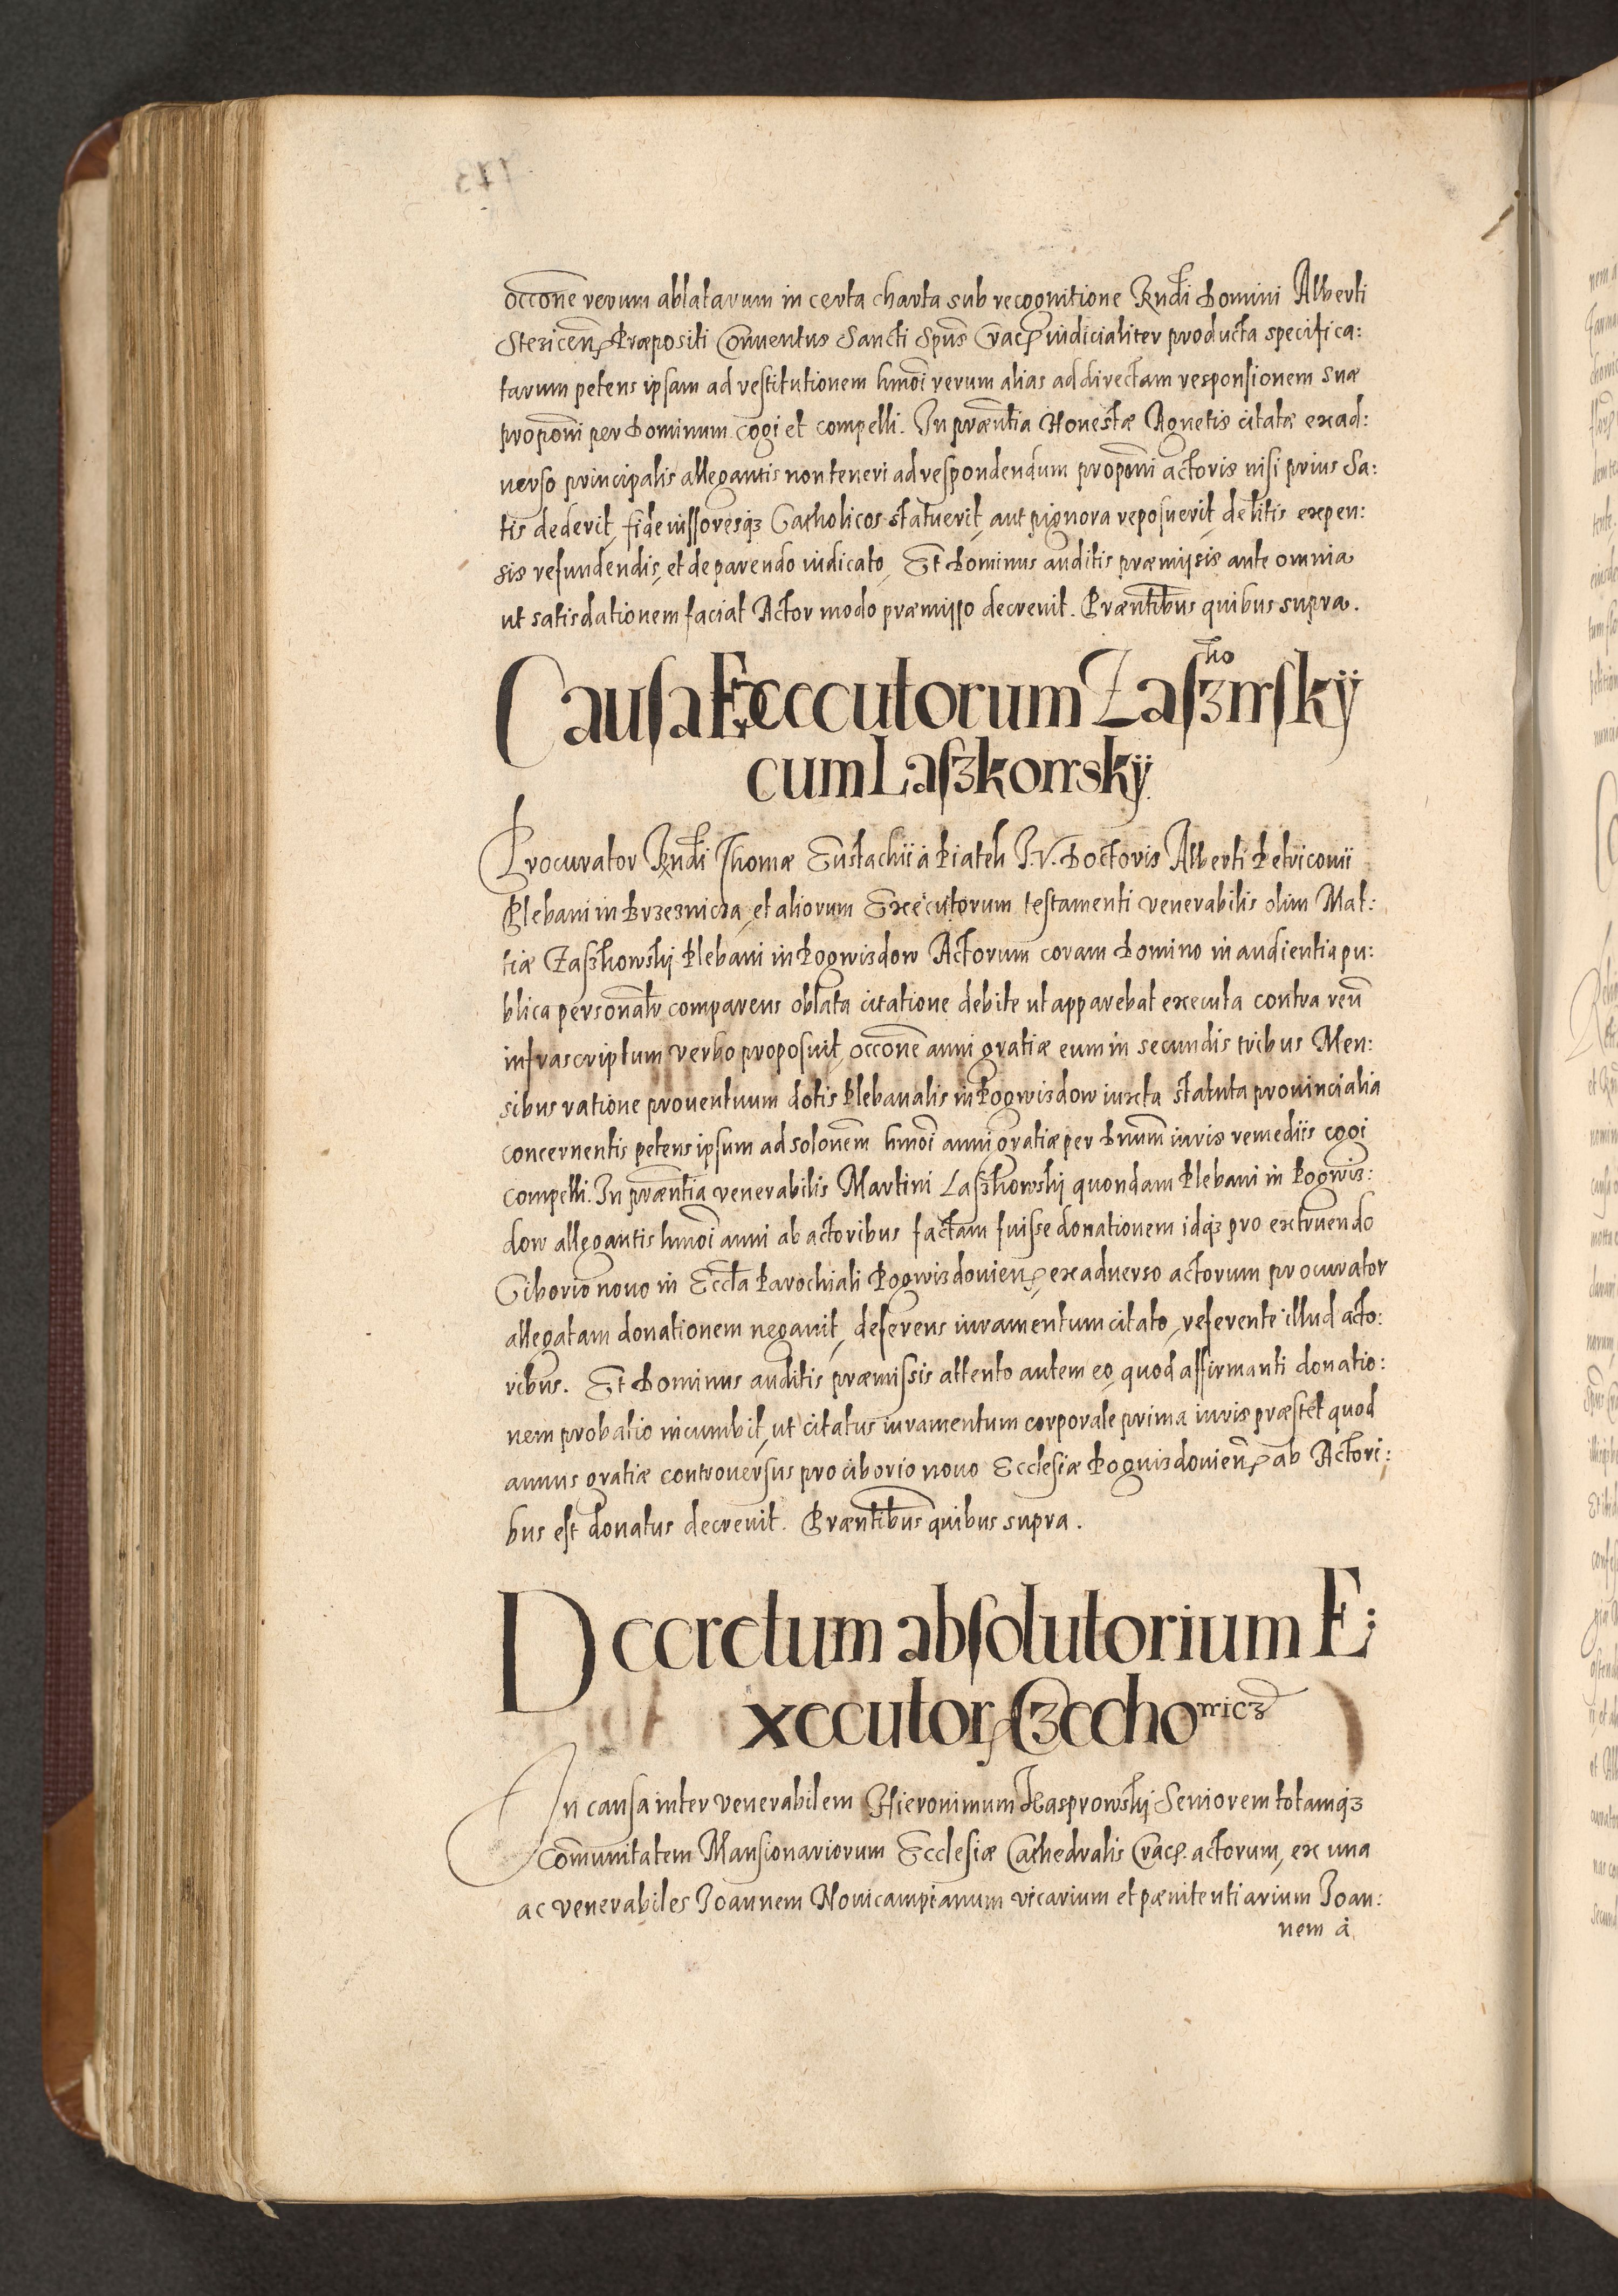 occōne rerum ablatarum in certa charta sub recognitione Rndi Domini Alberti
Stezicen̄ Præpositi Conuentus Sancti Spūs Crac̄ iudicialiter producta specifica:
tarum petens ipsam ad restitutionem hmōi rerum alias ad directam responsionem suæ
propōni per Dominum cogi et compelli. In præntia Honestæ Agnetis citatæ ex ad:
uerso principalis allegantis non teneri ad respondendum propōni actoris nisi prius Sa:
tis dederit, fideiussoresq́ʒ Catholicos statuerit, aut pignora reposuerit, de litis expen:
sis refundendis, et de parendo iudicato, Et Dominus auditis præmissis ante omnia
ut satisdationem faciat Actor modo præmisso decreuit. Præntibus quibus supra.
Causa Executorum Zaszkowsky
cum Laszkowsky
Procurator Rndi Thomæ Eustachii à Piatek I.V. Doctoris Alberti Petriconii
Plebani in Brzeznicza, et aliorum Executorum testamenti venerabilis olim Mat:
tiæ Zaszkowskij Plebani in Pogwizdow Actorum coram Domino in audientia pu:
blica personalr comparens oblata citatione debite ut apparebat executa contra reū
infrascriptum verbo proposuit, occōne anni gratiæ eum in secundis tribus Men:
sibus ratione prouentuum dotis Plebanalis in Pogwizdow iuxta statuta prouincialia
concernentis petens ipsum ad solonem hmōi anni gratiæ per Dnum iuris remediis cogi
compelli. In præntia venerabilis Martini Laszkowskij quondam Plebani in Pogwiz:
dow allegantis hmōi anni ab actoribus factam fuisse donationem idq́ʒ pro extruendo
Ciborio nouo in Eccla Parochiali Pogwizdouien̄, ex aduerso actorum procurator
allegatam donationem negauit, deferens iuramentum citato, referente illud acto:
ribus. Et Dominus auditis præmissis attento autem eo, quod affirmanti donatio:
nem probatio incumbit, ut citatus iuramentum corporale prima iuris præstet quod
annus gratiæ controuersus pro ciborio nouo Ecclesiæ Poguizdouien̄ ab Actori:
bus est donatus decreuit. Præntibus quibus supra.
Decretum absolutorium E:
xecutor̄ Czechowicz
In causa inter venerabilem Hieronimum Kasprowskij Seniorem totamq́ʒ
Cōmunitatem Mansionariorum Ecclesiæ Cathedralis Crac̄. actorum, ex una
ac venerabiles Joannem Nouicampianum vicarium et pænitentiarium Joan:
nem à